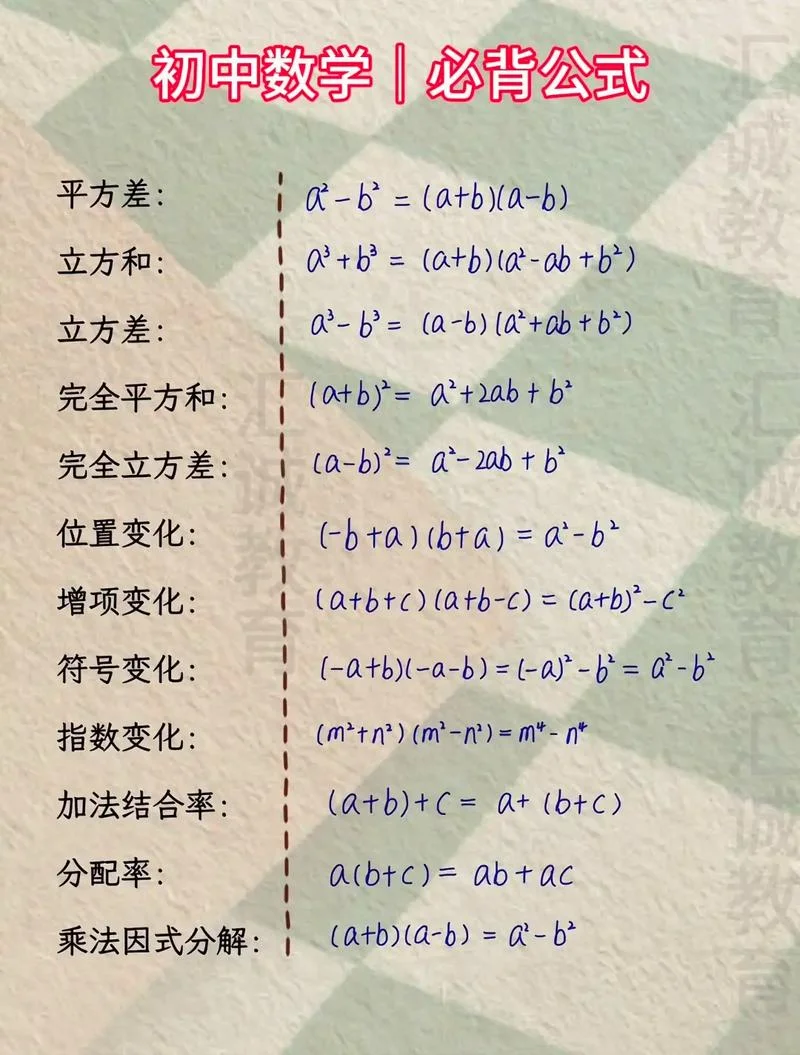 初中数学｜必背公式
平方差: a²-b² = (a+b)(a-b)
立方和: a³+b³ = (a+b)(a²-ab+b²)
立方差: a³-b³= (a-b)(a²+ab+b²)
完全平方和: (a+b)²= a²+2ab+b²
完全立方差: (a-b)²= a²-2ab+b²
位置变化: (-b+a)(b+a) = a²-b²
增项变化: (a+b+c)(a+b-c) = (a+b)²-c²
符号变化: (-a+b)(-a-b)=(-a)²-b²= a²-b²
指数变化: (m²+n²)(m²-n²)=m⁴-n⁴
加法结合率: (a+b)+c= a+(b+c)
分配率: a(b+c)= ab+ac
乘法因式分解: (a+b)(a-b) = a²-b²
汇诚教育
汇诚教育
汇诚教育
汇诚教育